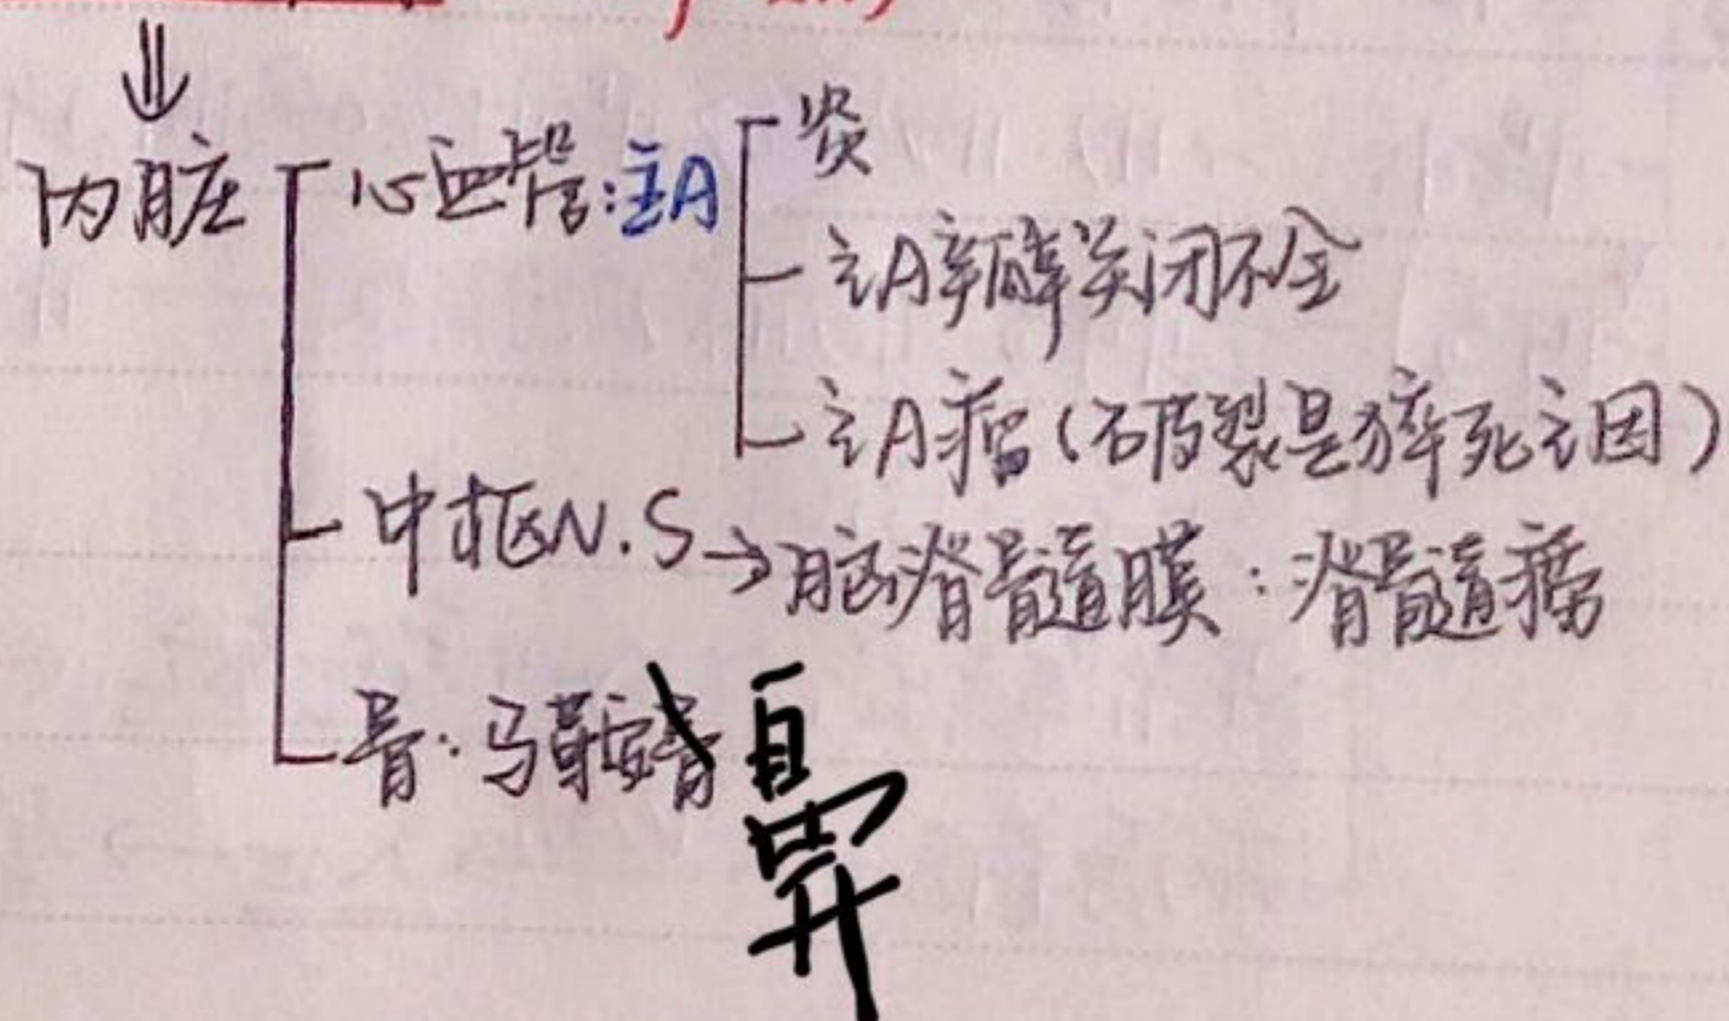 ⇓
炎
内脏 心血管:主A
主A瓣关闭不全
主A瘤(破裂是猝死主因)
中枢N.S→脑脊髓膜:脊髓痨
骨:马鞍骨 鼻